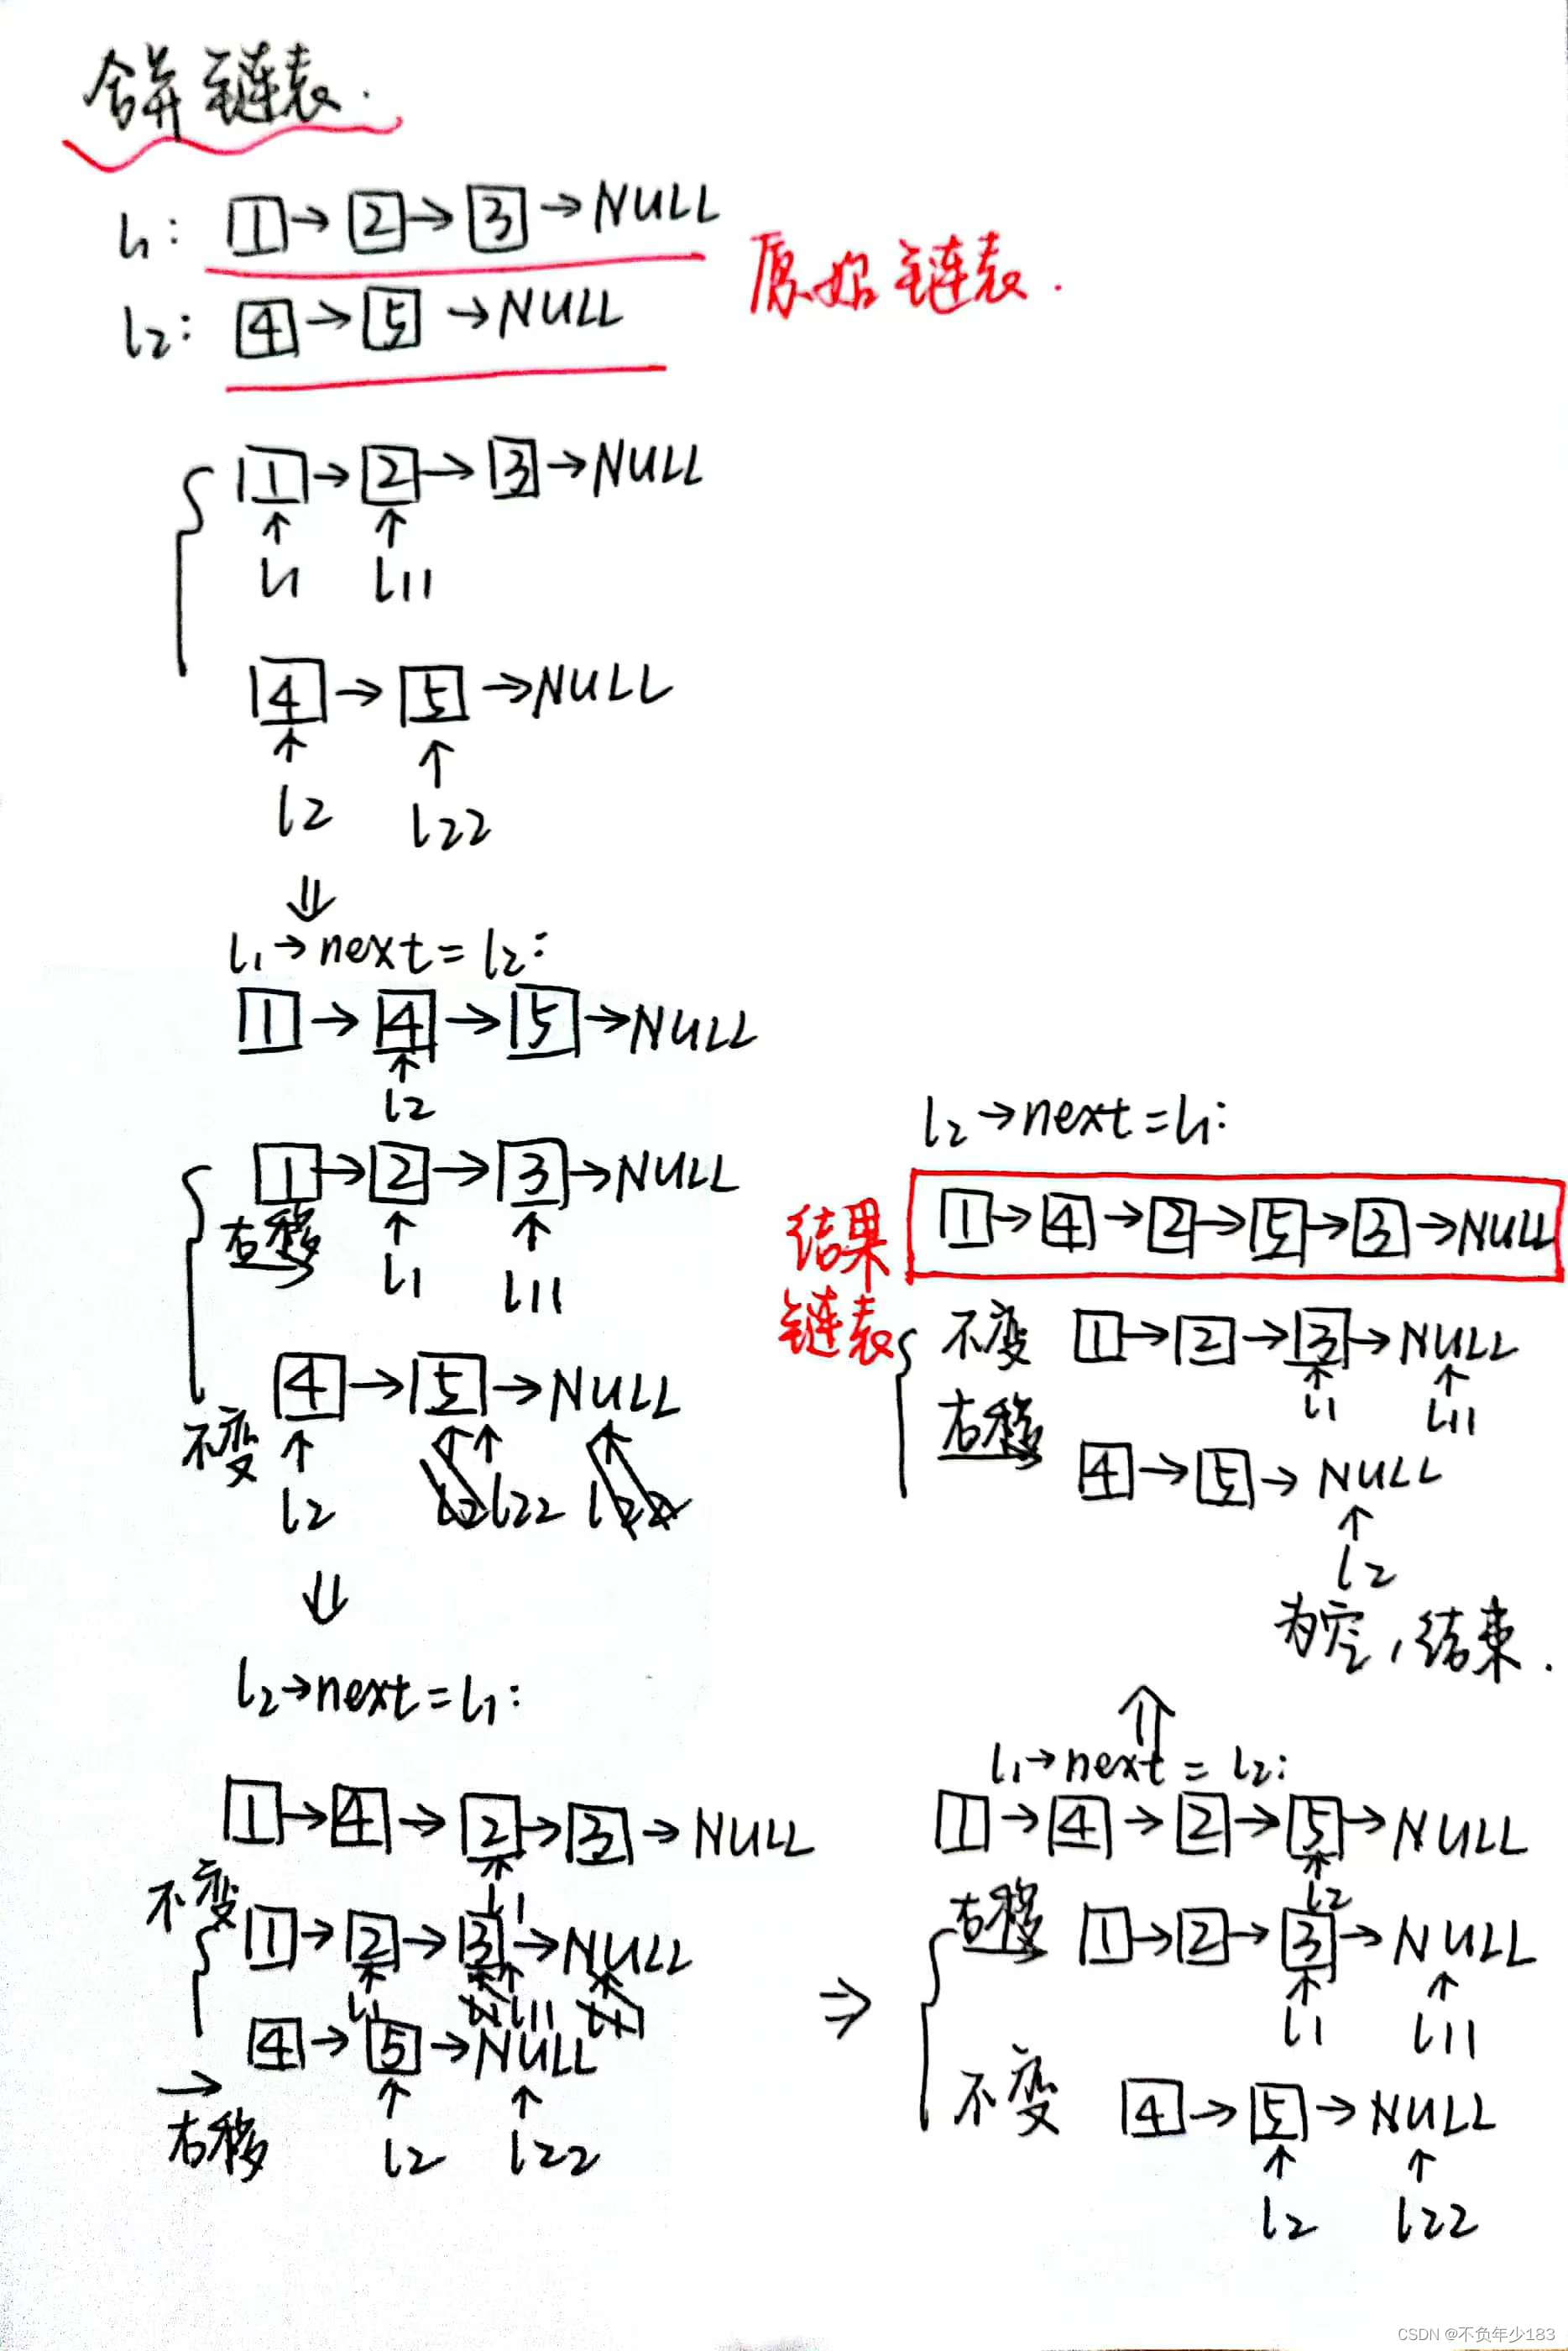 合并链表.
l1: 1→2→3→NULL
原始链表.
l2: 4→5→NULL
1→2→3→NULL
↑ ↑
l1 l11
4→5→NULL
↑ ↑
l2 l22
⇓
l1→next=l2:
1→4→5→NULL
↑
l2
1→2→3→NULL
右移 ↑ ↑
l1 l11
4→5→NULL
不变 ↑ ↑
l2 l22
⇓
l2→next=l1:
1→4→2→3→NULL
↑
l1
不变
1→2→3→NULL
↑ ↑
l1 l11
4→5→NULL
→ ↑ ↑
右移 l2 l22
⇒
l1→next=l2:
1→4→2→5→NULL
↑
l2
右移 1→2→3→NULL
↑ ↑
l1 l11
不变 4→5→NULL
↑ ↑
l2 l22
⇑
l2→next=l1:
结果链表
1→4→2→5→3→NULL
不变 1→2→3→NULL
↑ ↑
l1 l11
右移
4→5→NULL
↑
l2
为空,结束.
CSDN @不负年少183